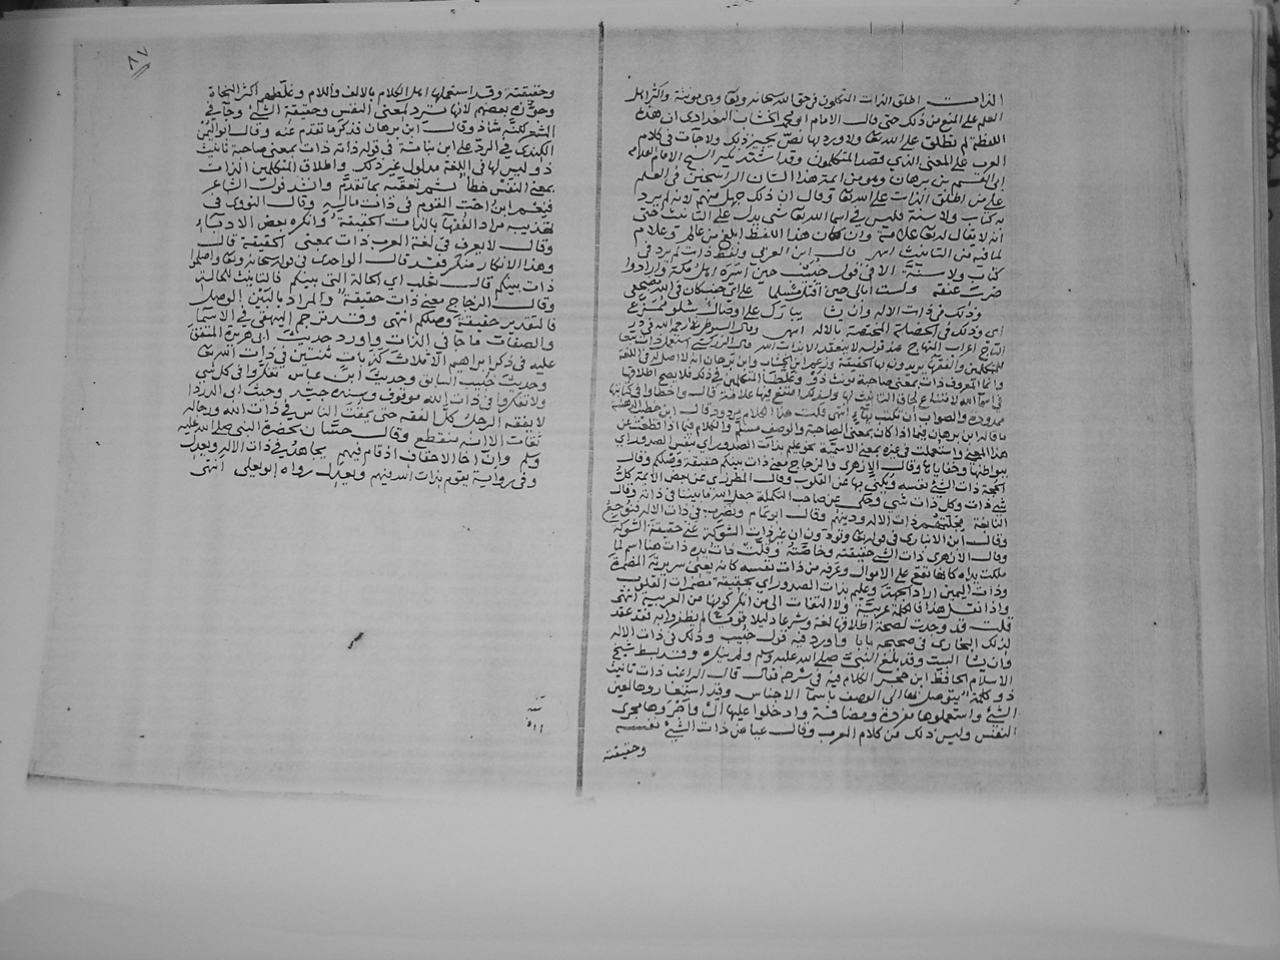 الذات اطلق الذات المتكلمون في حق الله سبحانه وتعالى وهي مؤنثة واكثر اهل
العلم على المنع من ذلك حتى قال الامام ابو محمد الخشاب البغدادي ان هذه
اللفظة لم تطلق على الله تعالى ولا ورد بها نص يجيز ذلك ولا جات في كلام
العرب على المعنى الذي قصد المتكلمون وقد اشتد نكير الشيخ الامام العلامة
ابي القسم بن برهان وهو من ايمة هذا الشان الراسخين في العلم
على من اطلق الذات على الله تعالى وقال ان ذلك جهل منهم لانه لم يرد
به كتاب ولا سنة فليس في اسما الله تعالى شي يدل على التانيث حتى
انه لا يقال له تعالى علامة وان كان هذا اللفظ ابلغ من عالم وعلام
لما فيه من التانيث انتهى قال ابن العربي ولفظ ذات لم يرد في
كتاب ولا سنة الا في قول خبيب حين اسره اهل مكة وارادوا
ضرب عنقه ولست ابالي حين اقتل مسلما على اي جنب كان في الله مصرعي
وذلك في ذات الاله وان يشا يبارك على اوصال شلو ممزع
اي وذلك في الخصلة المختصة بالاله انتهى
للمتكلمين والفقها يريدون بها الحقيقة وزعم ابن الخشاب وابن برهان انه لا اصل له في اللغة
وانما المعروف ذات بمعنى صاحبة مونث ذو وغلطا المتكلمين في ذلك فلا يصح اطلاقها
في اسما الله لامتناع لحاق التانيث لها ولذلك امتنع فيها علامة قال واخطاوا في كتابتها
ممدودة والصواب ان تكتب بالهاء انتهى قلت هذا الكلام مردود
ما قاله ابن برهان فيما اذا كان بمعنى الصاحبة والوصف مسلم والكلام فيما اذا قطعت عن
هذا المعنى واستعملت في غيره بمعنى الاسمية نحو عليم بذات الصدور اي بنفس الصدور اي
ببواطنها وخفاياها وقال الازهري والزجاج معنى ذات بينكم حقيقة وصلكم وقال
الحجة ذات الشي نفسه ويكنى بها عن القلوب وقال المطرزي عن بعض الايمة كل
شي ذات وكل ذات شي وحكى عن صاحب التكملة جعل الله ما بيننا في ذاته وقال
النابغة مجلتهم ذات الاله ودينهم وقال ابو تمام ويضرب في ذات الاله فيوجع
وقال ابن الانباري في قوله تعالى وتودون ان غير ذات الشوكة عني حقيقة الشوكة
وقال الازهري ذات الشي حقيقته وخاصته وقلت ذات يده ذات هنا اسم لما
ملكت يداه كانها تقع على الاموال وعرفه من ذات نفسه كانه يعني سريرته المضمرة
وذات اليمين اراد الجهة وعليم بذات الصدور اي بحقيقة مضمرات القلوب
واذا نقل هذا فالكلمة عربية ولا التفات الى من انكر كونها من العربية انتهى
قلت قد وجدت لصحة اطلاقها لغة وشرعا دليلا قويا لم يظفروا به فقد عقد
لذلك البخاري في صحيحه بابا واورد فيه قول خبيب وذلك في ذات الاله
وان يشا البيت وقد بلغ النبي صلى الله عليه وسلم ولم ينكره وقد بسط شيخ
الاسلام الحافظ ابن حجر الكلام فيه في شرحه فقال قال الراغب ذات تانيث
ذو كلمة يتوصل بها الى الوصف باسما الاجناس وقد استعاروها لعين
الشي واستعملوها مفردة ومضافة وادخلوا عليها ال واجروها مجرى
النفس وليس ذلك من كلام العرب وقال عياض ذات الشي نفسه
وحقيقته
٨٧
وحقيقته وقد استعملها اهل الكلام بالالف واللام وغلطهم اكثر النحاة
وجوزه بعضهم لانها ترد لمعنى النفس وحقيقة الشي وجا في
الشعر لكنه شاذ وقال ابن برهان فذكر ما تقدم عنه وقال ابو اليمن
الكندي في الرد على ابن نباتة في قوله ذاته ذات بمعنى صاحبة تانيث
ذو ليس لها في اللغة مدلول غير ذلك واطلاق المتكلمين الذات
بمعنى النفس خطا ثم تعقبه بما تقدم وانشد قول الشاعر
فنعم ابن اخت القوم في ذات ماله وقال النووي في
تهذيبه مراد الفقها بالذات الحقيقة وانكره بعض الادباء
وقال لا يعرف في لغة العرب ذات بمعنى الحقيقة قال
وهذا الانكار منكر فقد قال الواحدي في قوله سبحانه وتعالى واصلحوا
ذات بينكم قال ثعلب اي الحالة التي بينكم فالتانيث للحالة
وقال الزجاج معنى ذات حقيقة والمراد بالبين الوصل
فالتقدير حقيقة وصلكم انتهى وقد ترجم البيهقي في الاسما
والصفات ما جا في الذات واورد حديث ابي هريرة المتفق
عليه في ذكر ابراهيم الا ثلاث كذبات ثنتين في ذات الله تعالى
وحديث خبيب السابق وحديث ابن عباس تفكروا في كل شي
ولا تفكروا في ذات الله موقوف وسنده جيد وحديث ابي الدردا
لا يفقه الرجل كل الفقه حتى يمقت الناس في ذات الله ورجاله
ثقات الا انه منقطع وقال حسان بحضرة النبي صلى الله عليه
وسلم وان اخا الاحقاف اذ قام فيهم يجاهد في ذات الاله ويعدل
وفي رواية يقوم بذات الله فيهم ويعدل رواه ابو يعلى انتهى